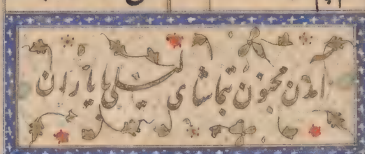 آمدن مجنون بتماشای لیلی با یاران